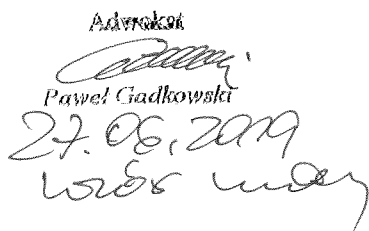 Adwokat
Paweł Gadkowski
27.06.2019